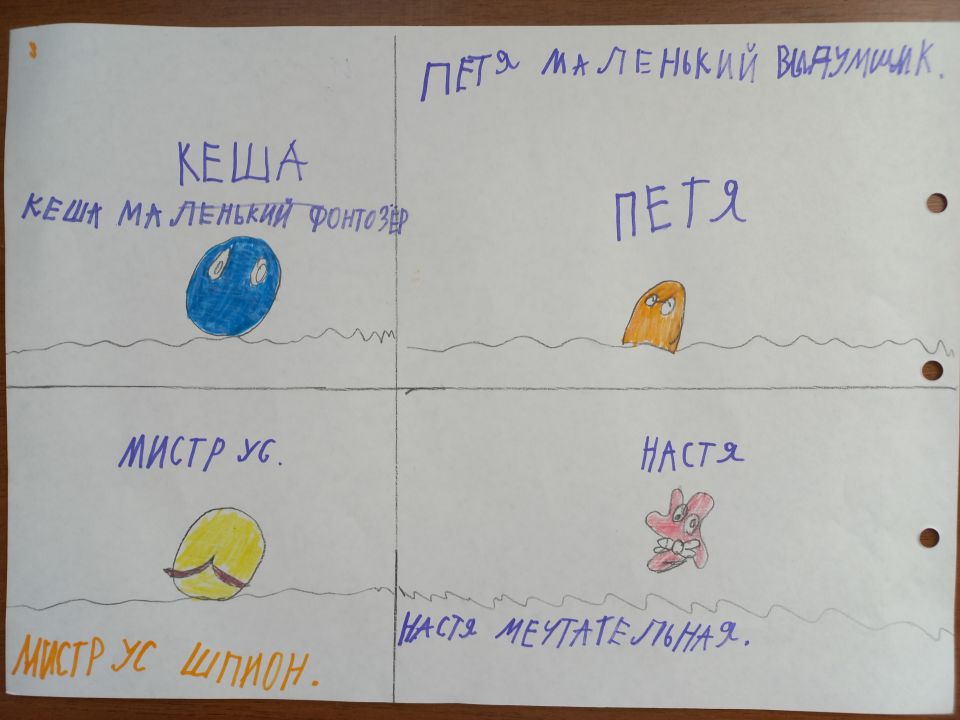 3
КЕША
КЕША МАЛЕНЬКИЙ ФОНТОЗЁР
ПЕТЯ МАЛЕНЬКИЙ ВЫДУМЩИК.
ПЕТЯ
МИСТР УС.
МИСТР УС ШПИОН.
НАСТЯ
НАСТЯ МЕЧТАТЕЛЬНАЯ.